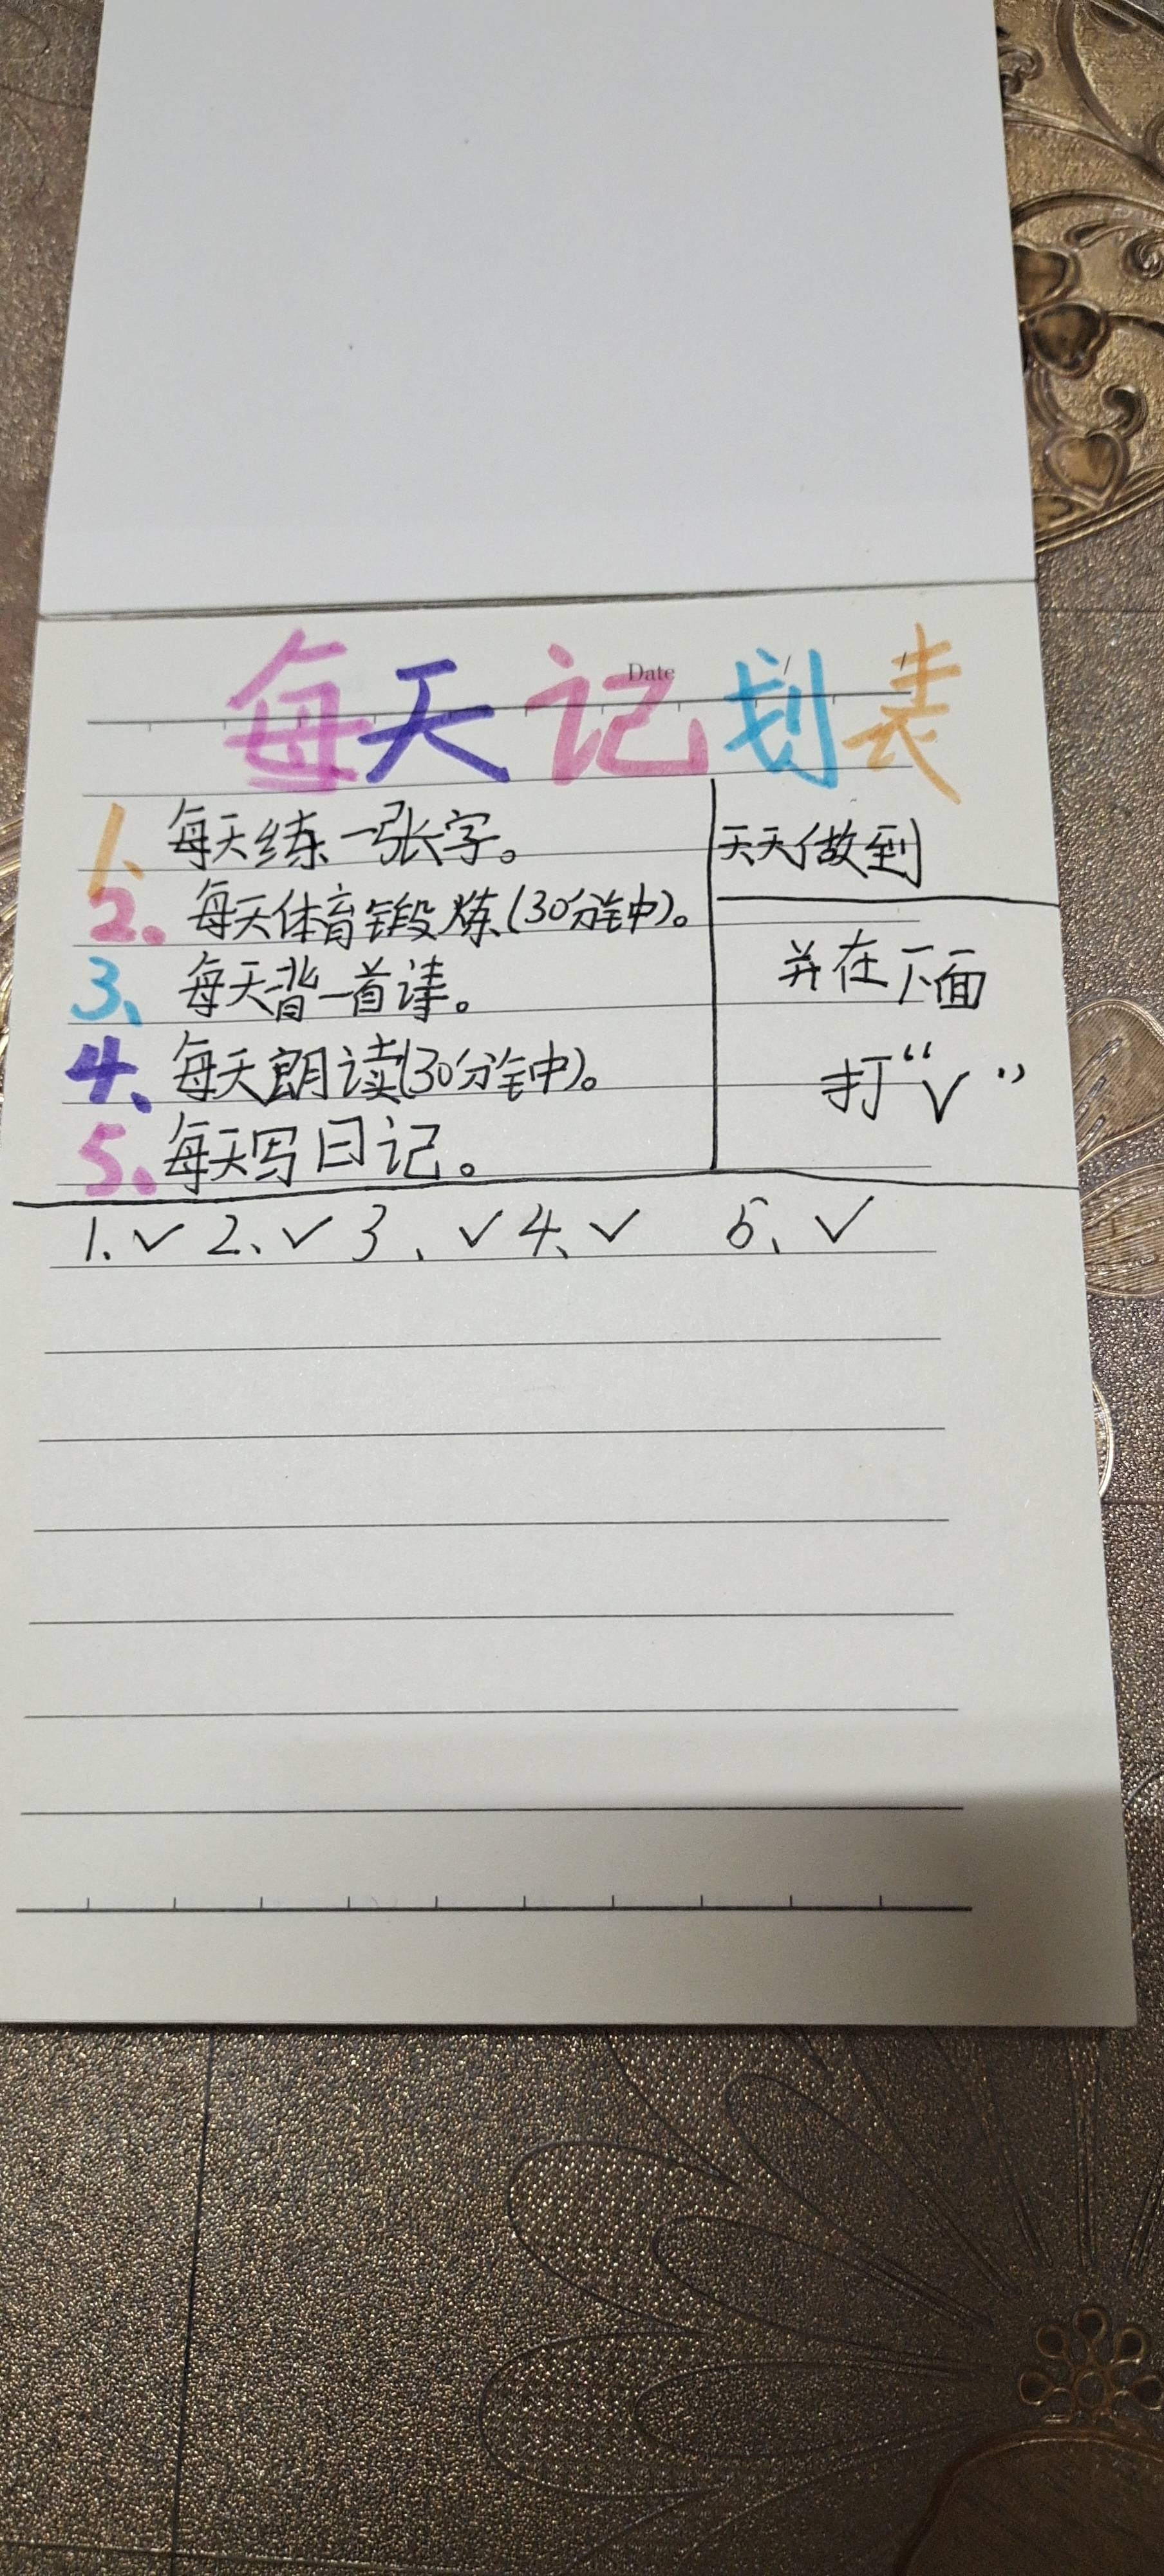 Date
每天记划表
1、每天练一张字。
2、每天体育锻炼(30分钟)。
3、每天背一首诗。
4、每天朗读(30分钟)。
5、每天写日记。
天天做到
并在下面
打“√”
1、✓ 2、✓ 3、✓ 4、✓ 5、✓